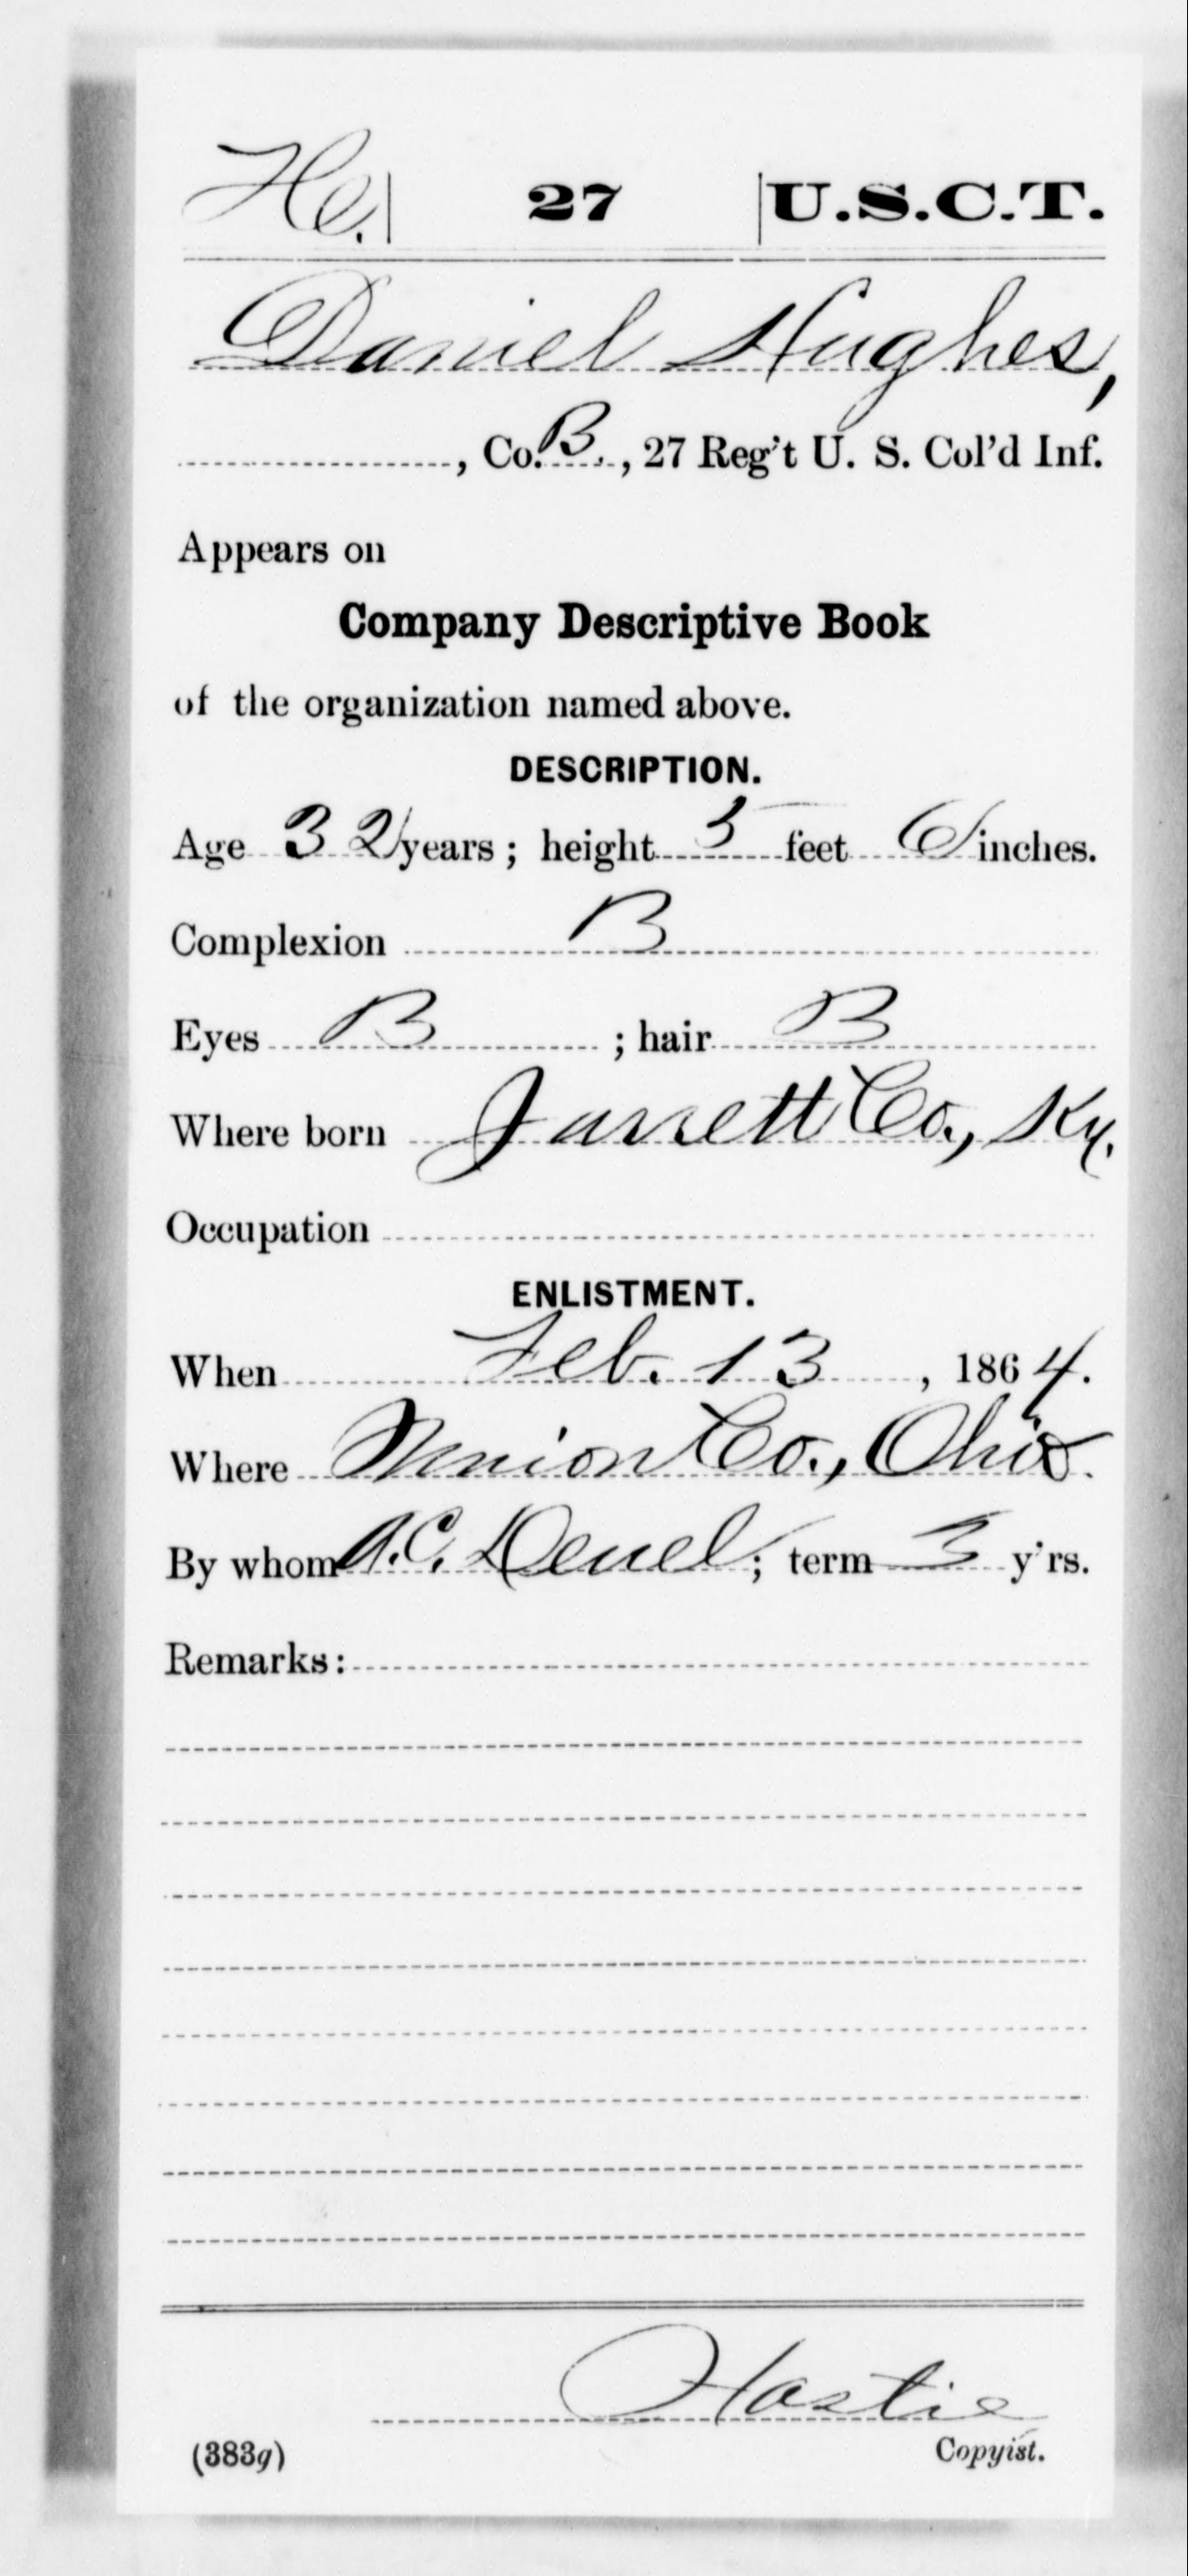 H. | 27 | U.S.C.T.
Daniel Hughes,
, Co. B., 27 Reg't U. S. Col'd Inf.
Appears on
Company Descriptive Book
of the organization named above.
DESCRIPTION.
Age 32 years; height 5 feet 6 inches.
Complexion B
Eyes B ; hair B
Where born Jarrett Co., Ky.
Occupation
ENLISTMENT.
When Feb. 13, 1864.
Where Union Co., Ohio.
By whom A.C. Deuel; term 3 y'rs.
Remarks:
Hastie
(383g) Copyist.